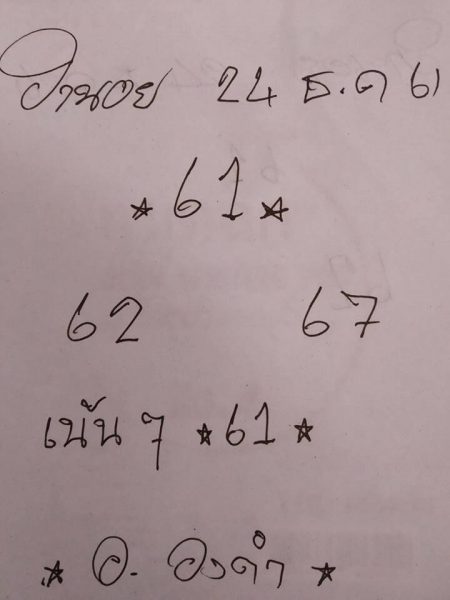 ฮานอย 24 ธ.ค 61
★ 61 ★
62 67
เน้น ๆ ★ 61 ★
★ อ. องดำ ★